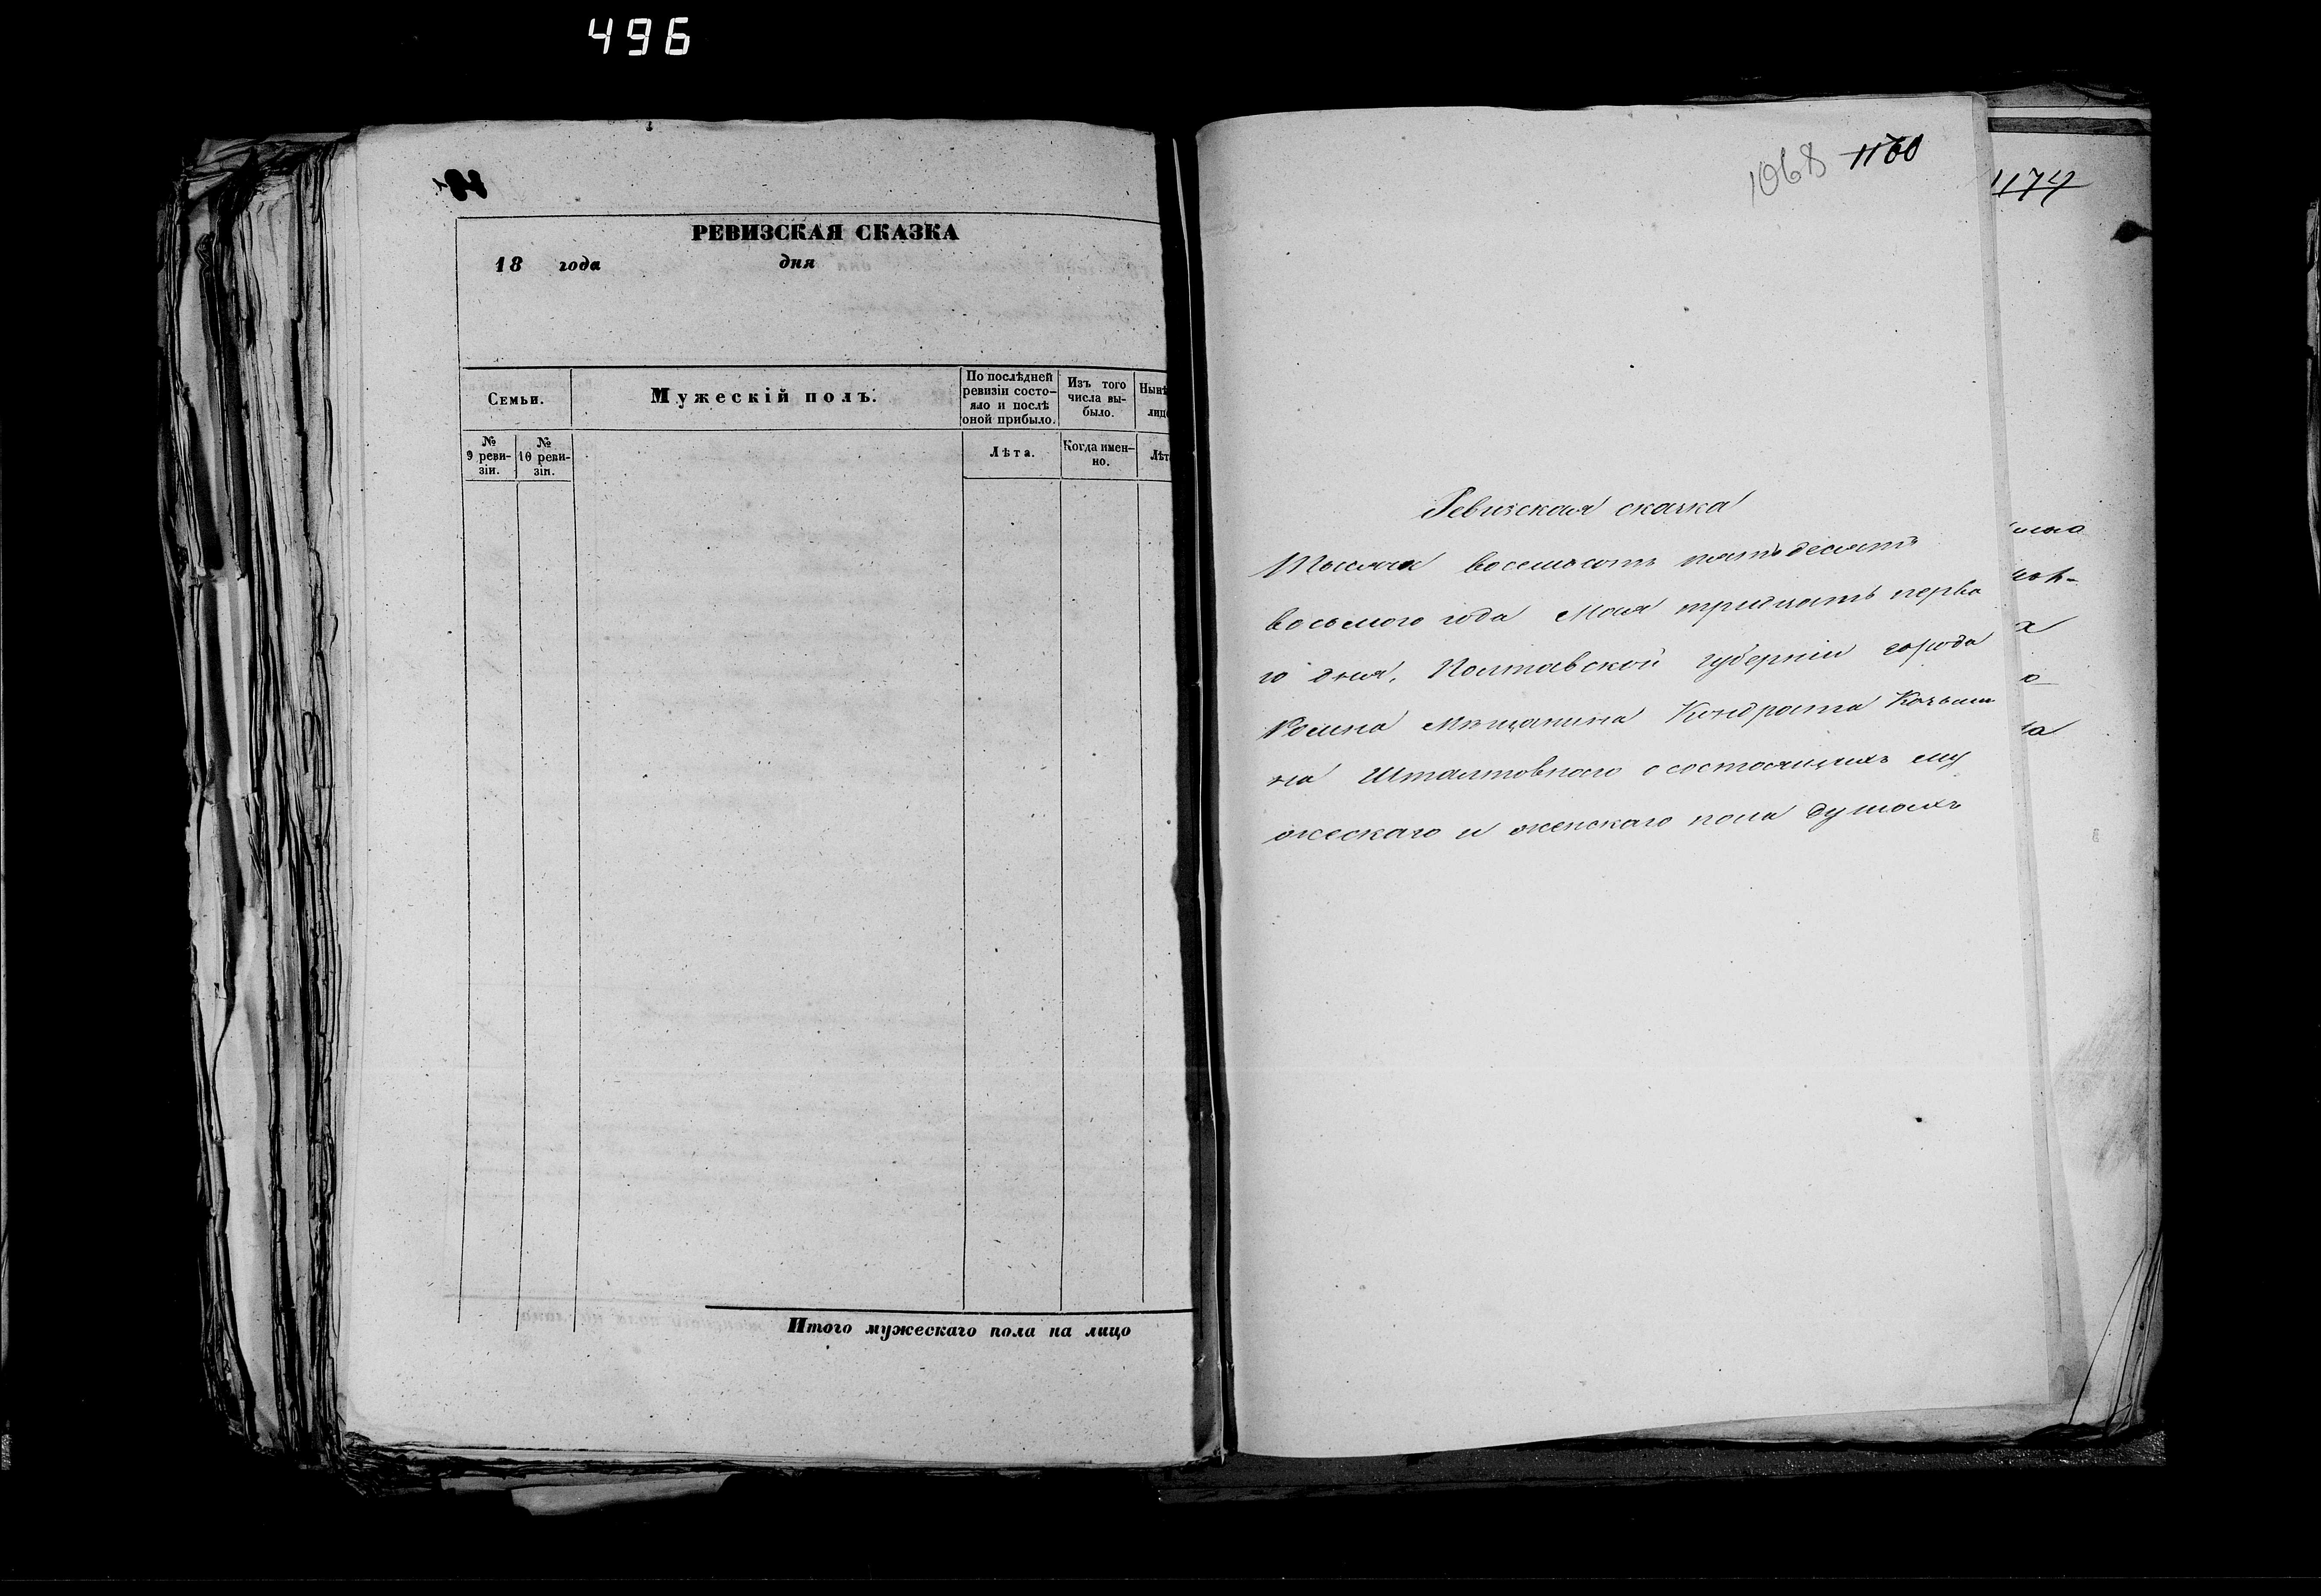 496
РЕВИЗСКАЯ СКАЗКА
18 года дня
Семьи.
Мужескій полъ.
По послѣдней ревизіи состо-
яло и послѣ оной прибыло.
Изъ того числа вы-
было.
Нынѣ
лиц
№ 9 реви-
зіи.
№ 10 реви-
зіи.
Лѣта.
Когда имен-
но.
Лѣт
Итого мужескаго пола на лицо
1068 1160
Ревизская сказка
Тысяча восемьсотъ пятьдесятъ
восьмого года Мая тридцать перва
го дня, Полтавской губерніи города
Ромна Мѣщанина Кондрата Козьми
на о состоящихъ му
жескаго и женскаго пола душахъ
1174